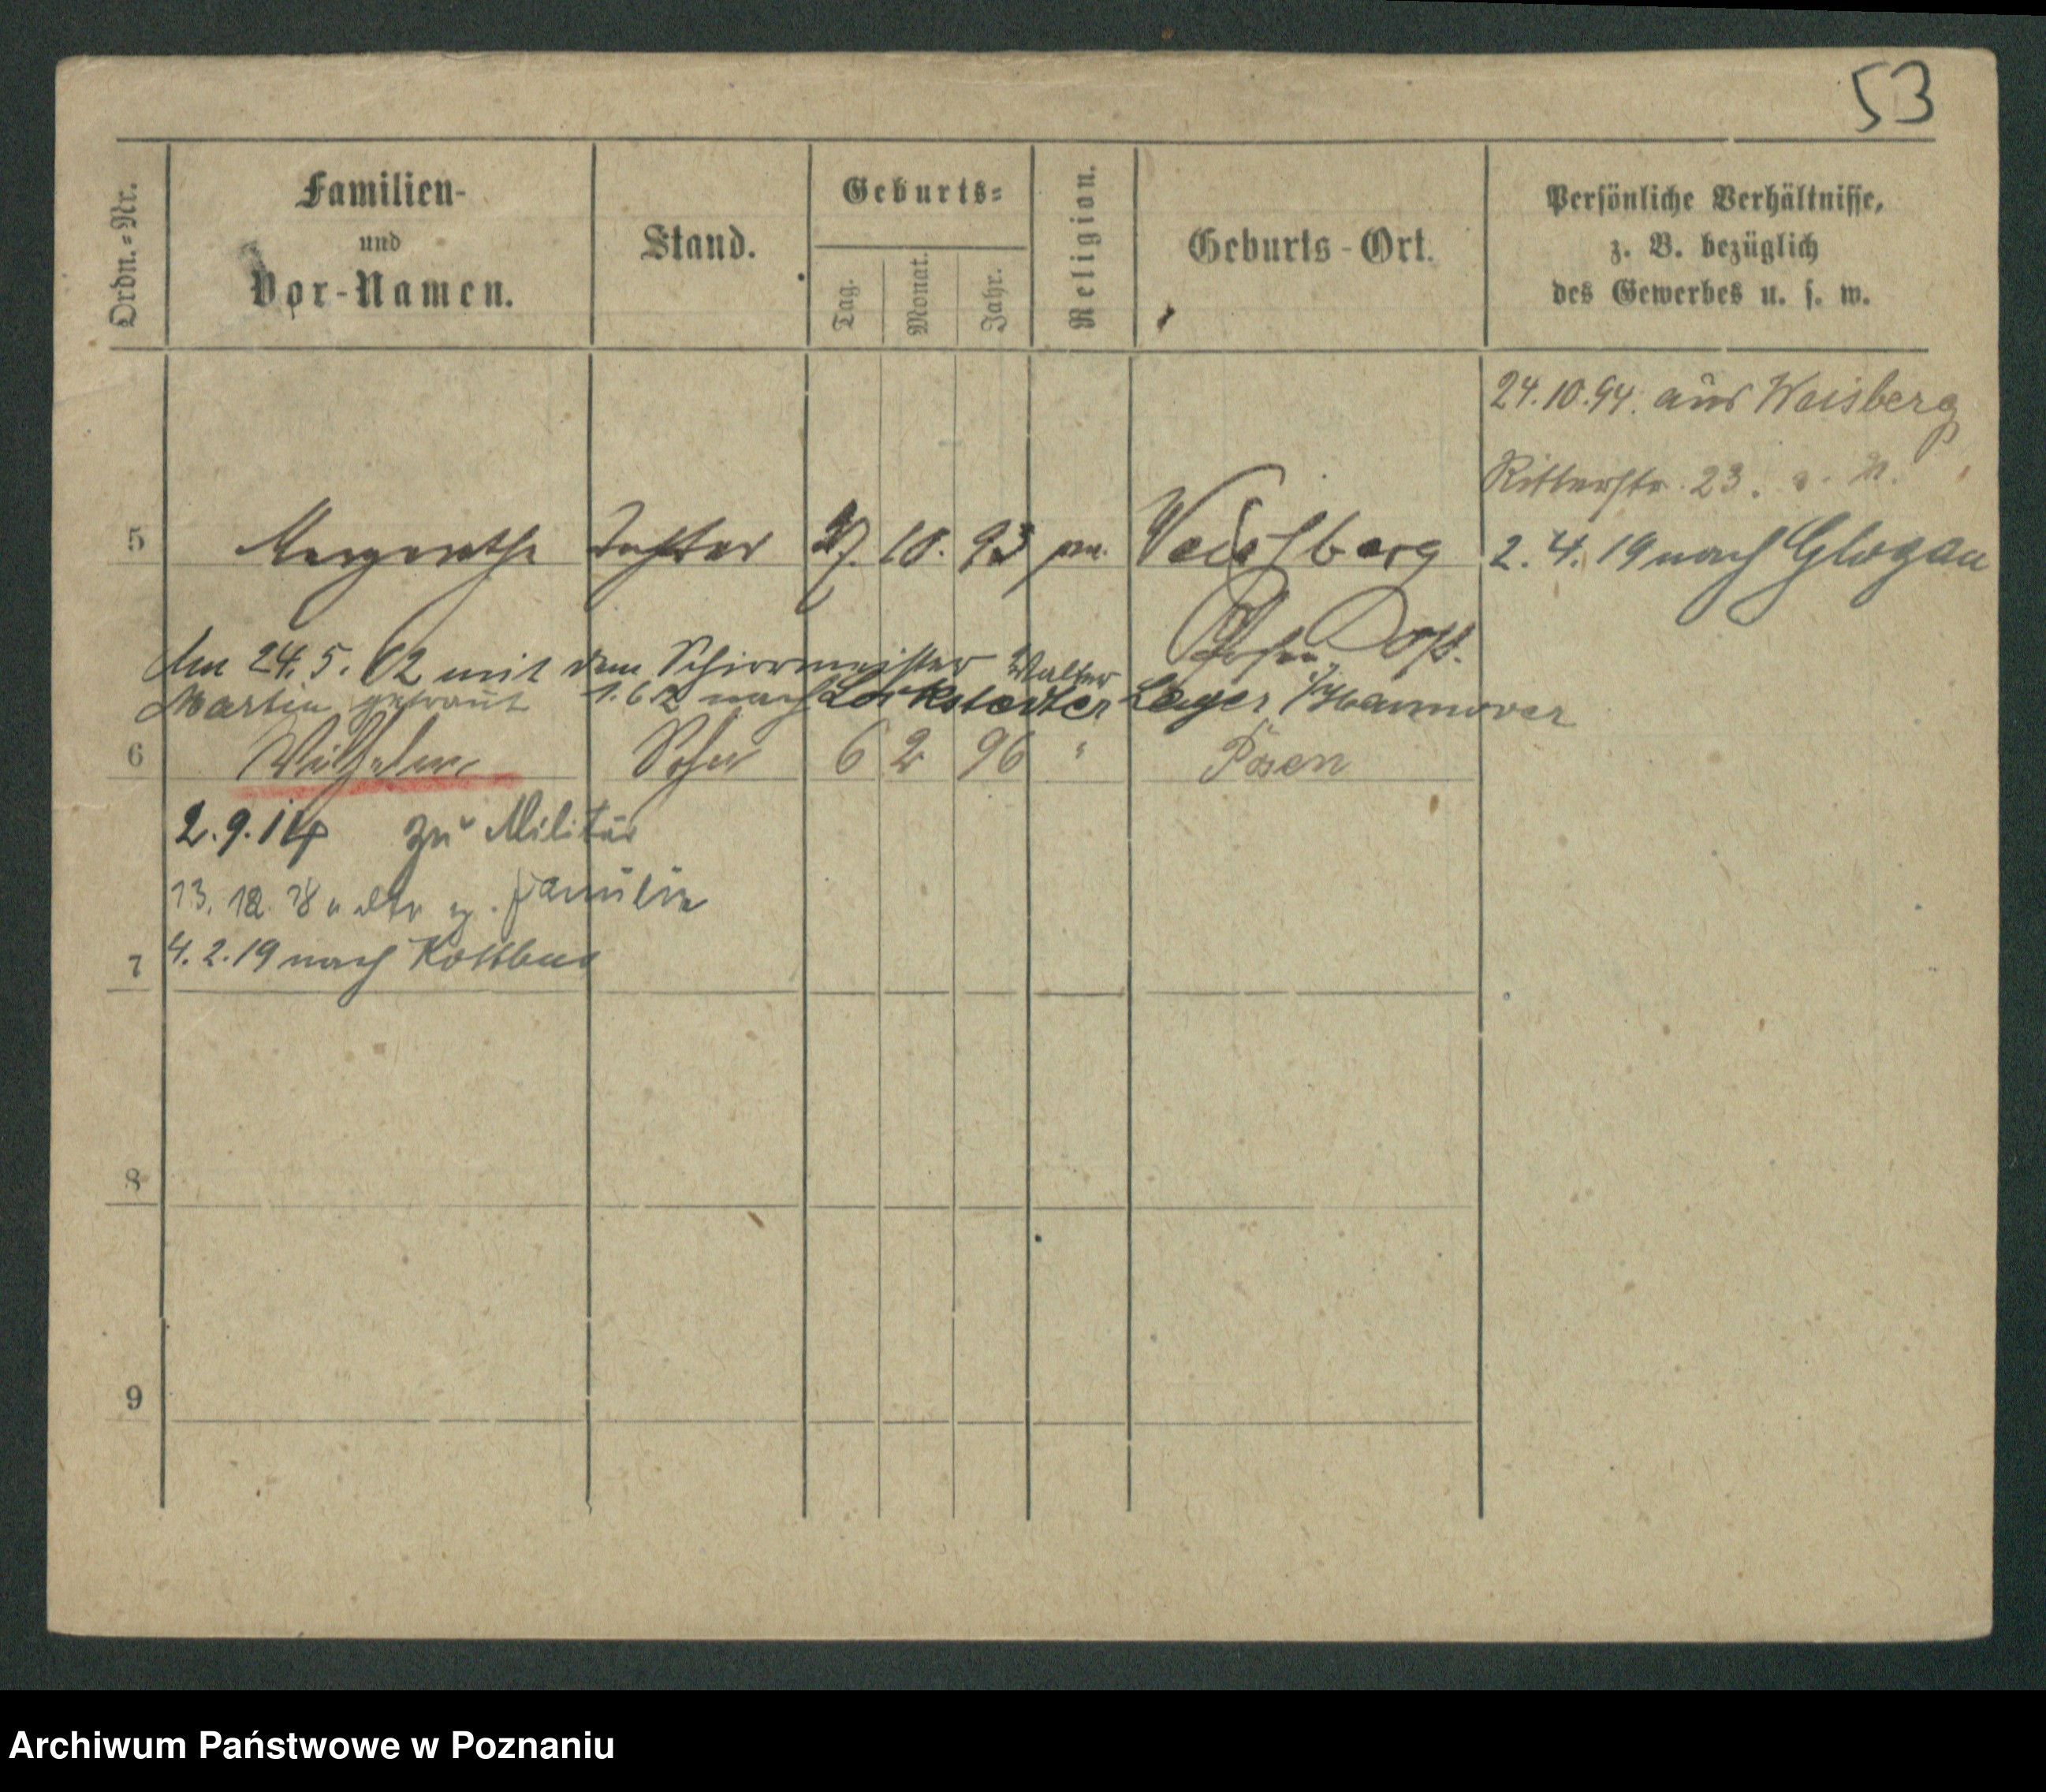 53
Ordn.=Nr.
Familien-
und
Vor-Namen.
Stand.
Geburts=
Tag.
Monat.
Jahr.
Religion.
Geburts-Ort.
Persönliche Verhältnisse,
z. B. bezüglich
des Gewerbes u. s. w.
24.10.94. aus Weisberg
Ritterstr. 23.
5 Margarethe Tochter 27. 10. 93 Weissberg 2. 4. 19 nach Glogau
Posen
Am 24. 5. 12 mit dem Schirrmeister Walter
Martin getraut 1. 6 12 nach Lockstedter Lager /Hannover
6 Wilhelm Sohn 6 2 96 " Posen
2. 9. 14 zu Militär
13. 12. 18 Familie
7 4. 2. 19 nach Kottbus
8
9
Archiwum Państwowe w Poznaniu